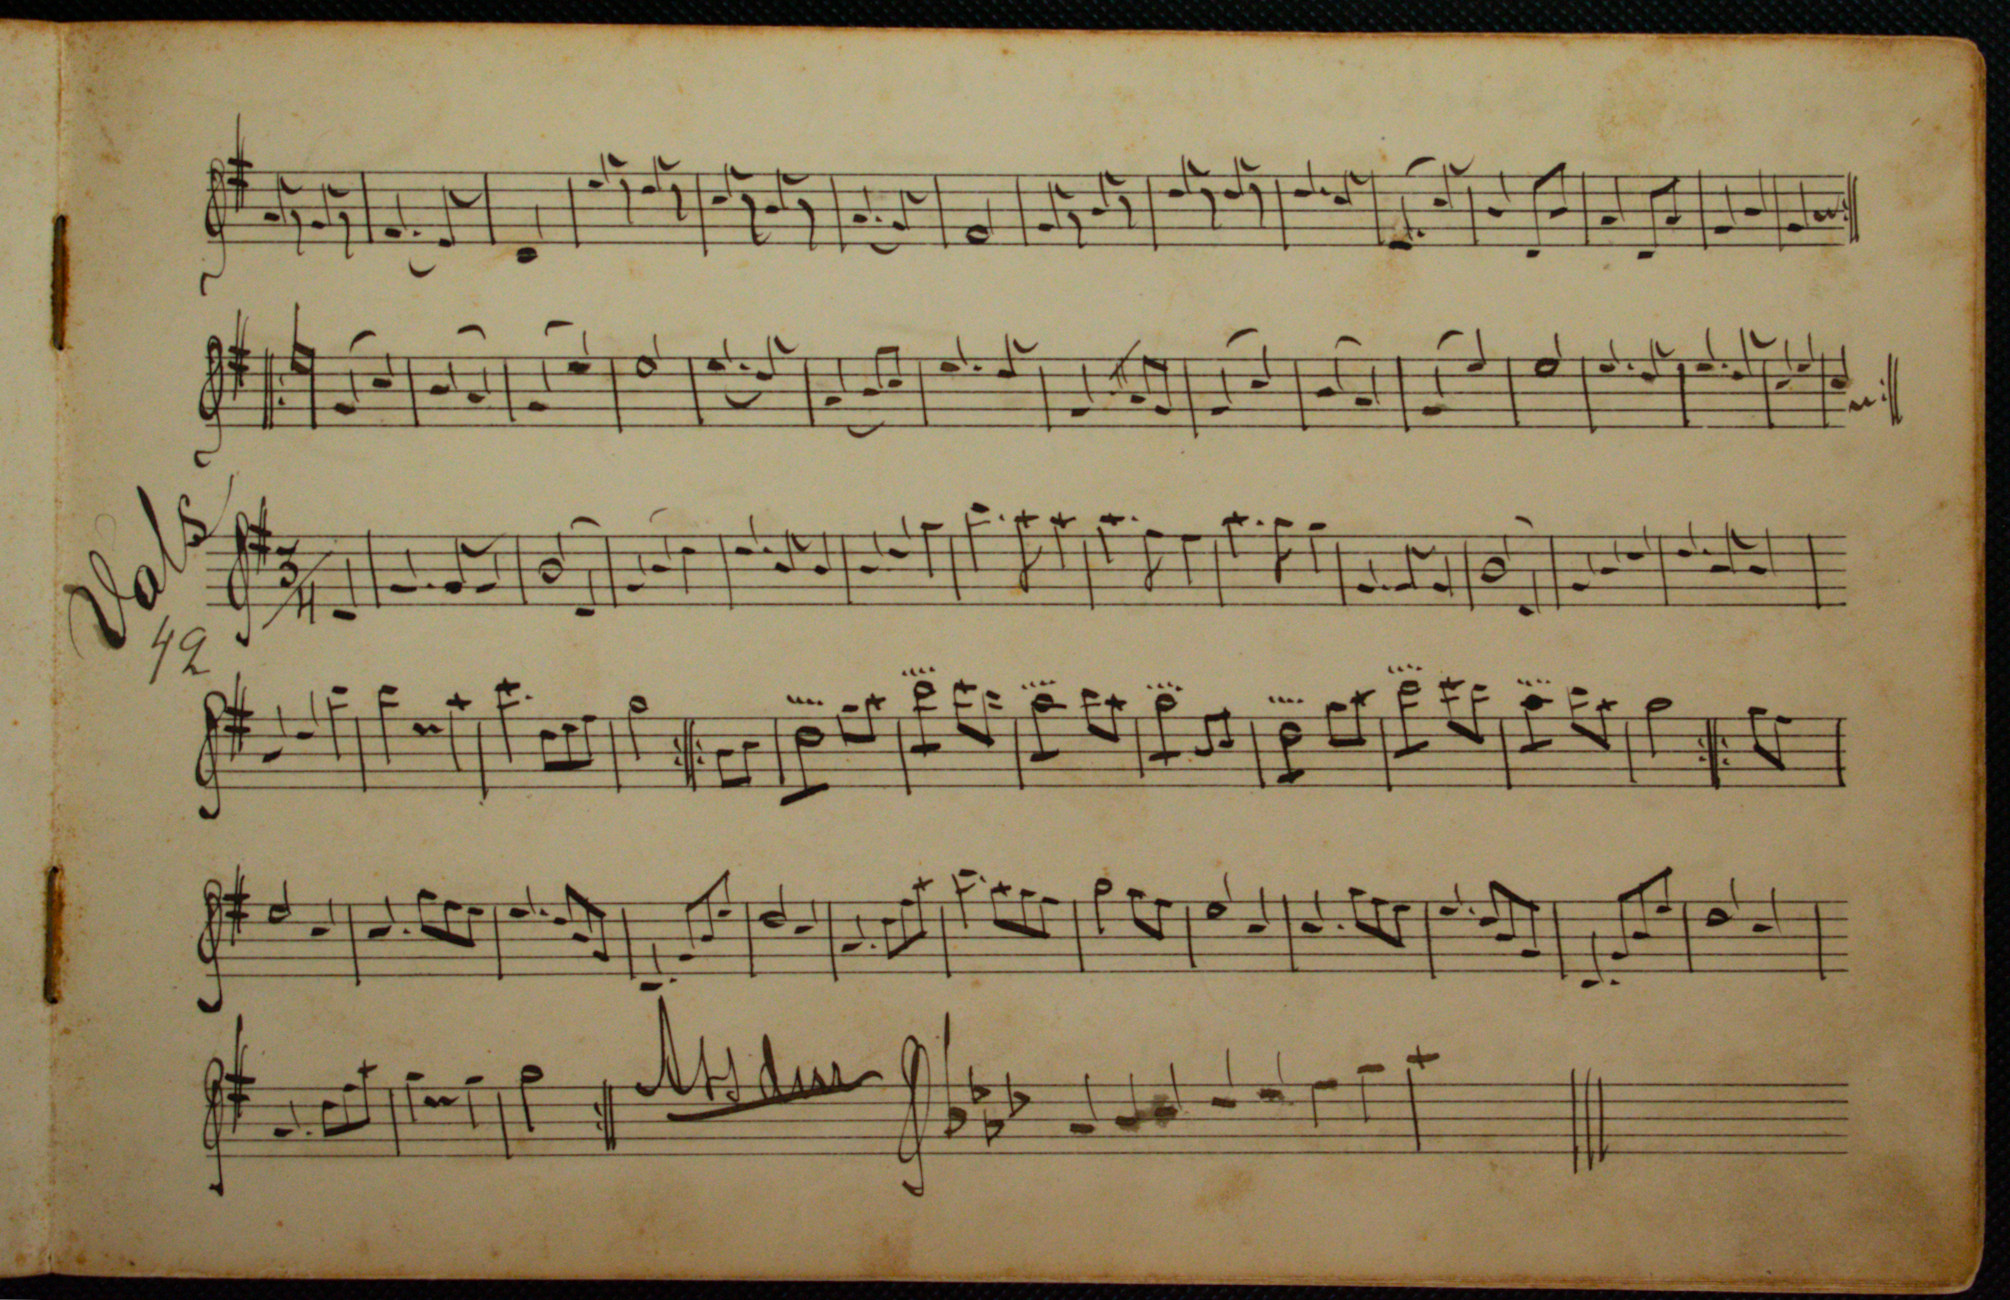 Vals
42
3/4
Ass dur